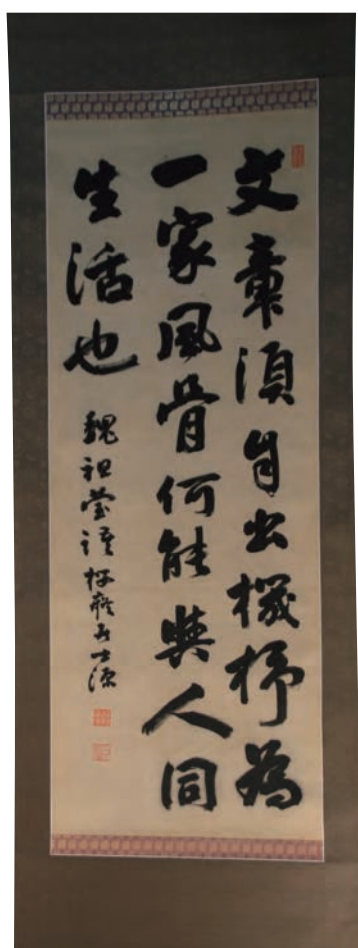 文章須自出機杼為
一家風骨何能與人同
生活也
魏祖瑩語